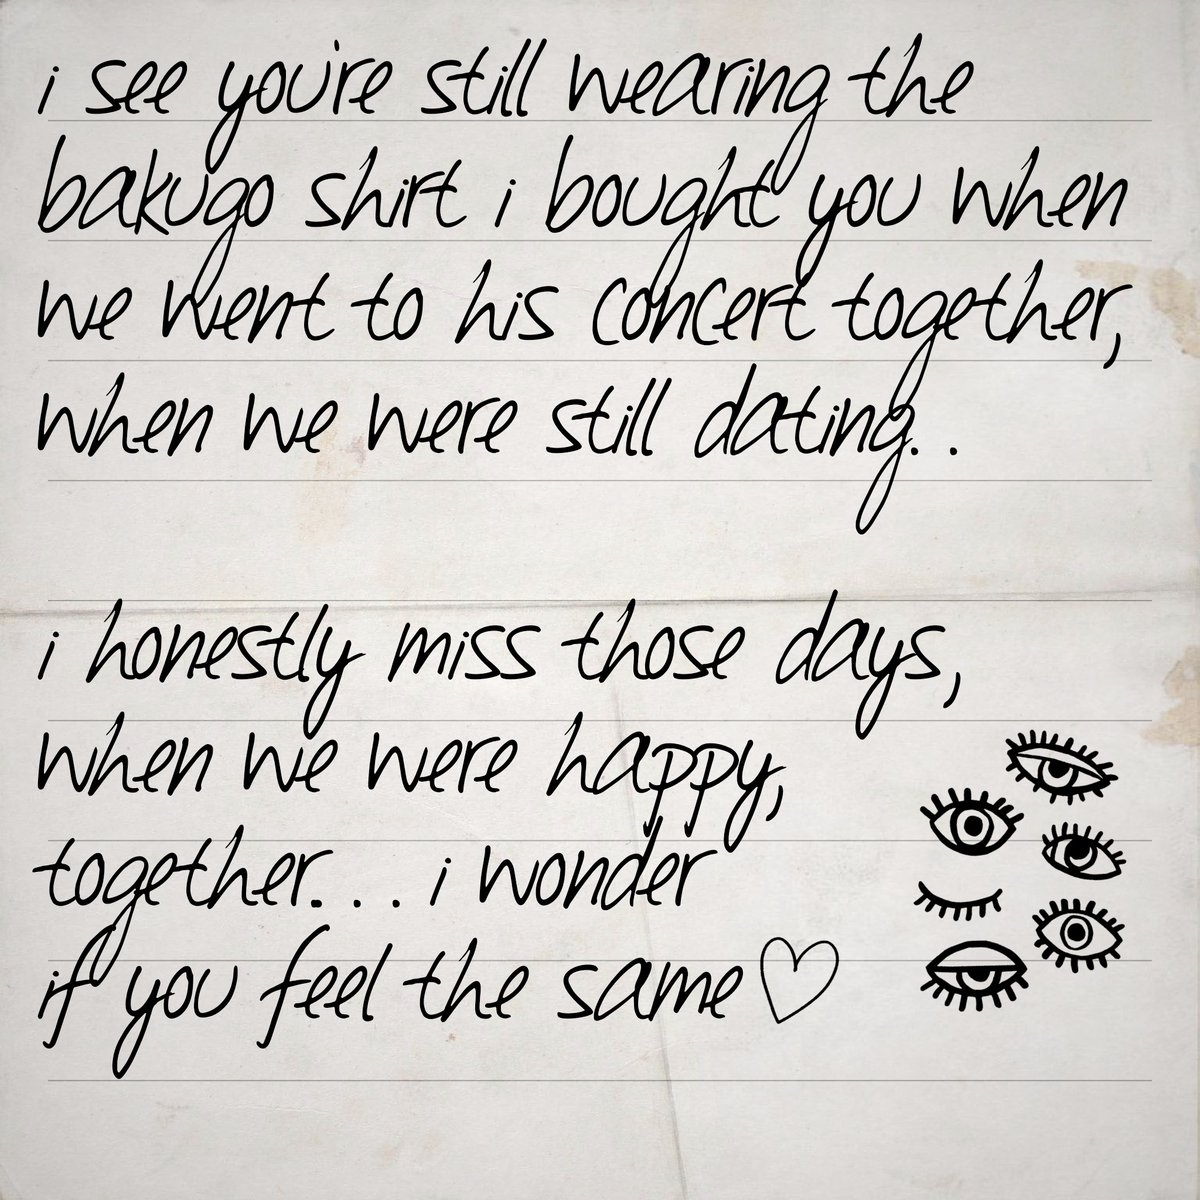 i see you're still wearing the
bakugo shirt i bought you when
we went to his concert together,
when we were still dating. .
i honestly miss those days,
when we were happy,
together. . . i wonder
if you feel the same♡